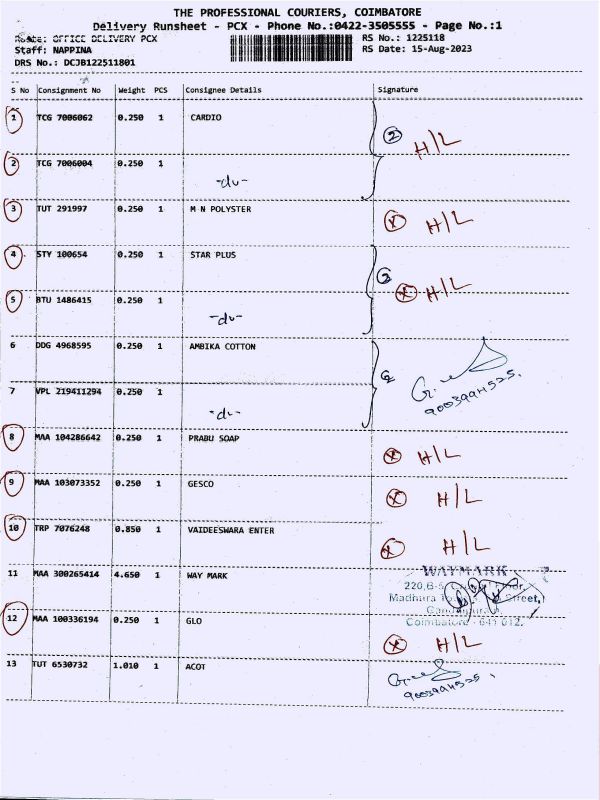 THE PROFESSIONAL COURIERS, COIMBATORE
Delivery Runsheet - PCX - Phone No.:0422-3505555 - Page No.:1
Route: OFFICE DELIVERY PCX
RS No.: 1225118
Staff: NAPPINA
RS Date: 15-Aug-2023
DRS No.: DCJB122511801
S No Consignment No Weight PCS Consignee Details Signature
1 TCG 7006062 0.250 1 CARDIO
2 H/L
2 TCG 7006004 0.250 1
-du-
3 TUT 291997 0.250 1 M N POLYSTER X H/L
4 STY 100654 0.250 1 STAR PLUS
2 X H/L
5 BTU 1486415 0.250 1
-du-
6 DDG 4968595 0.250 1 AMBIKA COTTON
2
7 VPL 219411294 0.250 1
-du-
8 MAA 104286642 0.250 1 PRABU SOAP X H/L
9 MAA 103073352 0.250 1 GESCO X H/L
10 TRP 7076248 0.850 1 VAIDEESWARA ENTER X H/L
11 MAA 300265414 4.650 1 WAY MARK
WAYMARK
220,B-5, Floor,
Madhura Street,
Coimbatore - 641 012.
12 MAA 100336194 0.250 1 GLO X H/L
13 TUT 6530732 1.010 1 ACOT